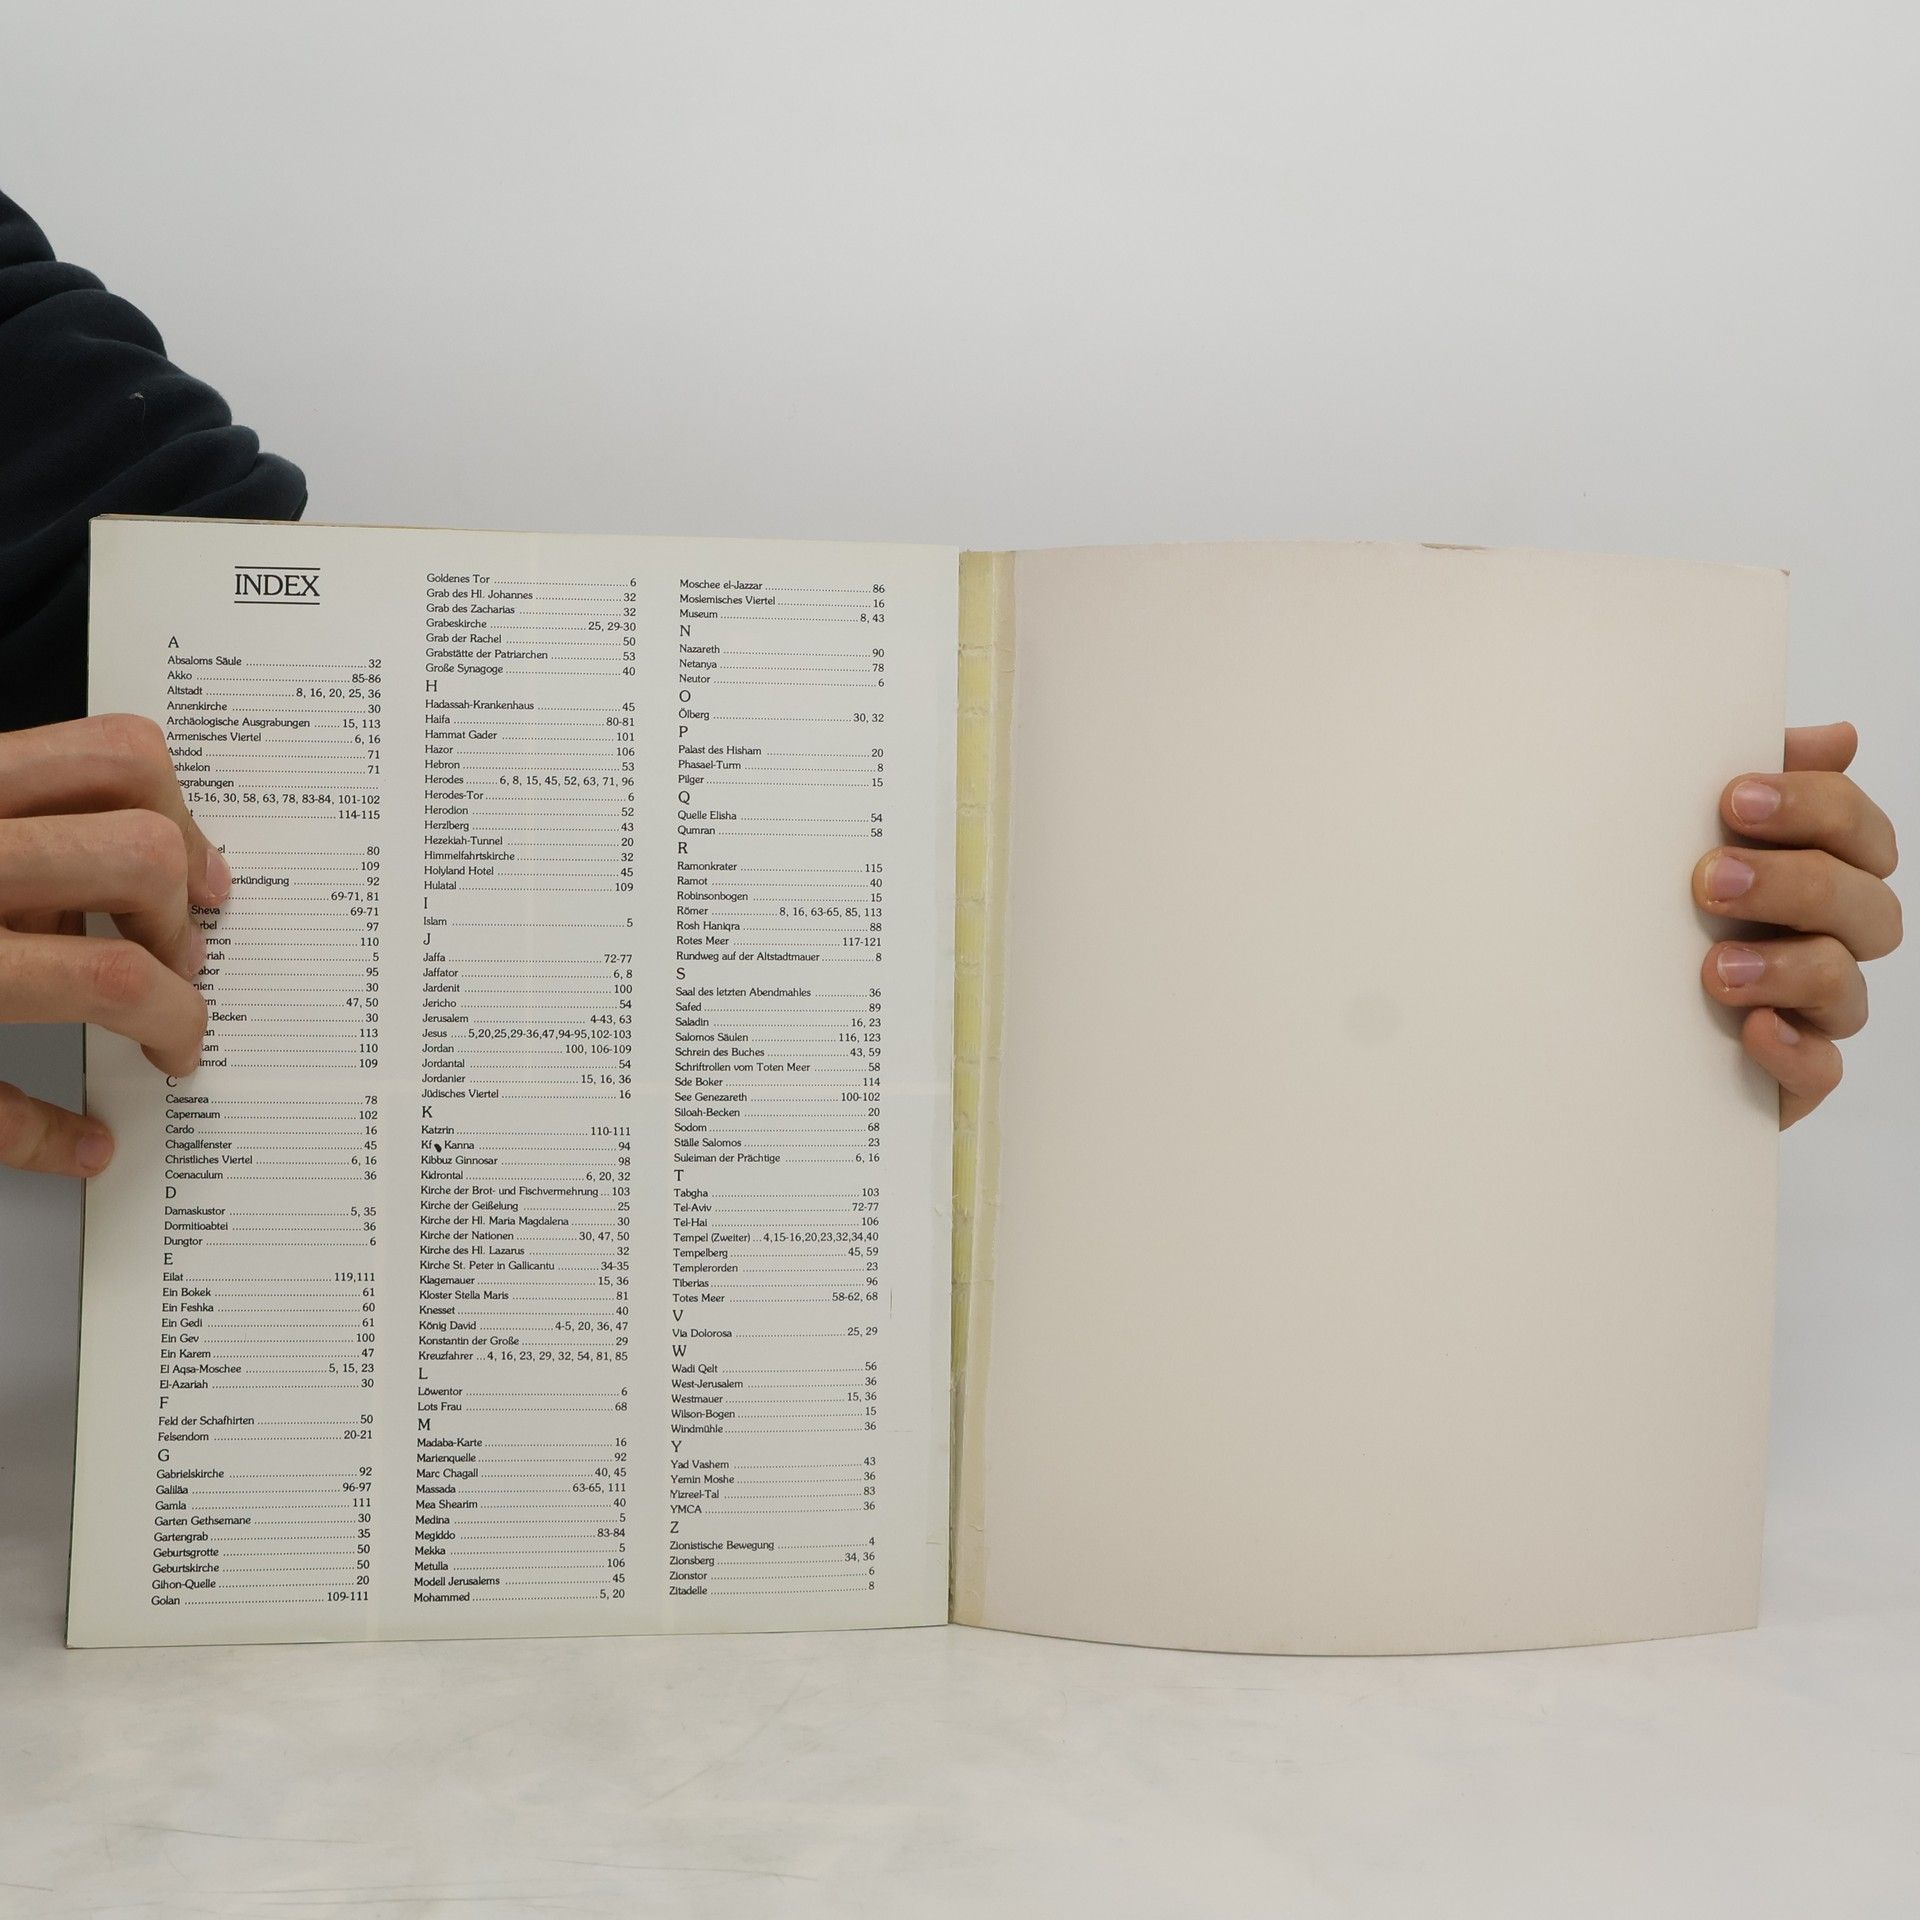 INDEX
A
Absaloms Säule 32
Akko 85-86
Altstadt 8, 16, 20, 25, 36
Annenkirche 30
Archäologische Ausgrabungen 15, 113
Armenisches Viertel 6, 16
Ashdod 71
shkelon 71
sgrabungen
15-16, 30, 58, 63, 78, 83-84, 101-102
t 114-115
el 80
109
erkündigung 92
69-71, 81
Sheva 69-71
rbel 97
rmon 110
riah 5
abor 95
nien 30
em 47, 50
-Becken 30
an 113
am 110
imrod 109
C
Caesarea 78
Capernaum 102
Cardo 16
Chagallfenster 45
Christliches Viertel 6, 16
Coenaculum 36
D
Damaskustor 5, 35
Dormitioabtei 36
Dungtor 6
E
Eilat 119,111
Ein Bokek 61
Ein Feshka 60
Ein Gedi 61
Ein Gev 100
Ein Karem 47
El Aqsa-Moschee 5, 15, 23
El-Azariah 30
F
Feld der Schafhirten 50
Felsendom 20-21
G
Gabrielskirche 92
Galiläa 96-97
Gamla 111
Garten Gethsemane 30
Gartengrab 35
Geburtsgrotte 50
Geburtskirche 50
Gihon-Quelle 20
Golan 109-111
Goldenes Tor 6
Grab des Hl. Johannes 32
Grab des Zacharias 32
Grabeskirche 25, 29-30
Grab der Rachel 50
Grabstätte der Patriarchen 53
Große Synagoge 40
H
Hadassah-Krankenhaus 45
Haifa 80-81
Hammat Gader 101
Hazor 106
Hebron 53
Herodes 6, 8, 15, 45, 52, 63, 71, 96
Herodes-Tor 6
Herodion 52
Herzlberg 43
Hezekiah-Tunnel 20
Himmelfahrtskirche 32
Holyland Hotel 45
Hulatal 109
I
Islam 5
J
Jaffa 72-77
Jaffator 6, 8
Jardenit 100
Jericho 54
Jerusalem 4-43, 63
Jesus 5,20,25,29-36,47,94-95,102-103
Jordan 100, 106-109
Jordantal 54
Jordanier 15, 16, 36
Jüdisches Viertel 16
K
Katzrin 110-111
Kf Kanna 94
Kibbuz Ginnosar 98
Kidrontal 6, 20, 32
Kirche der Brot- und Fischvermehrung 103
Kirche der Geißelung 25
Kirche der Hl. Maria Magdalena 30
Kirche der Nationen 30, 47, 50
Kirche des Hl. Lazarus 32
Kirche St. Peter in Gallicantu 34-35
Klagemauer 15, 36
Kloster Stella Maris 81
Knesset 40
König David 4-5, 20, 36, 47
Konstantin der Große 29
Kreuzfahrer 4, 16, 23, 29, 32, 54, 81, 85
L
Löwentor 6
Lots Frau 68
M
Madaba-Karte 16
Marienquelle 92
Marc Chagall 40, 45
Massada 63-65, 111
Mea Shearim 40
Medina 5
Megiddo 83-84
Mekka 5
Metulla 106
Modell Jerusalems 45
Mohammed 5, 20
Moschee el-Jazzar 86
Moslemisches Viertel 16
Museum 8, 43
N
Nazareth 90
Netanya 78
Neutor 6
O
Ölberg 30, 32
P
Palast des Hisham 20
Phasael-Turm 8
Pilger 15
Q
Quelle Elisha 54
Qumran 58
R
Ramonkrater 115
Ramot 40
Robinsonbogen 15
Römer 8, 16, 63-65, 85, 113
Rosh Haniqra 88
Rotes Meer 117-121
Rundweg auf der Altstadtmauer 8
S
Saal des letzten Abendmahles 36
Safed 89
Saladin 16, 23
Salomos Säulen 116, 123
Schrein des Buches 43, 59
Schriftrollen vom Toten Meer 58
Sde Boker 114
See Genezareth 100-102
Siloah-Becken 20
Sodom 68
Ställe Salomos 23
Suleiman der Prächtige 6, 16
T
Tabgha 103
Tel-Aviv 72-77
Tel-Hai 106
Tempel (Zweiter) 4,15-16,20,23,32,34,40
Tempelberg 45, 59
Templerorden 23
Tiberias 96
Totes Meer 58-62, 68
V
Via Dolorosa 25, 29
W
Wadi Qelt 56
West-Jerusalem 36
Westmauer 15, 36
Wilson-Bogen 15
Windmühle 36
Y
Yad Vashem 43
Yemin Moshe 36
Yizreel-Tal 83
YMCA 36
Z
Zionistische Bewegung 4
Zionsberg 34, 36
Zionstor 6
Zitadelle 8